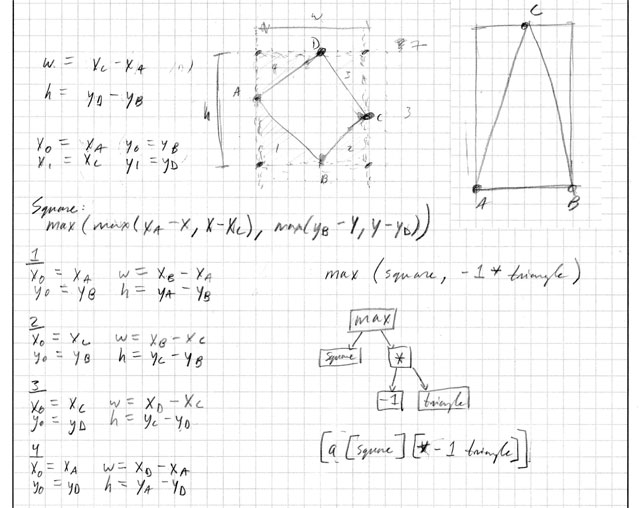 w
w = x_C - x_A
h = y_D - y_B
x_0 = x_A y_0 = y_B
x_1 = x_C y_1 = y_D
h
A
B
C
D
1
2
3
4
7
3
C
A
B
Square:
max(max(x_A - x, x - x_C), max(y_B - y, y - y_D))
1
x_0 = x_A w = x_B - x_A
y_0 = y_B h = y_A - y_B
2
x_0 = x_C w = x_B - x_C
y_0 = y_B h = y_C - y_B
3
x_0 = x_C w = x_D - x_C
y_0 = y_D h = y_C - y_D
4
x_0 = x_A w = x_D - x_A
y_0 = y_D h = y_A - y_D
max (square, -1 * triangle)
max
square
*
-1
triangle
[a [square] [* -1 triangle]]